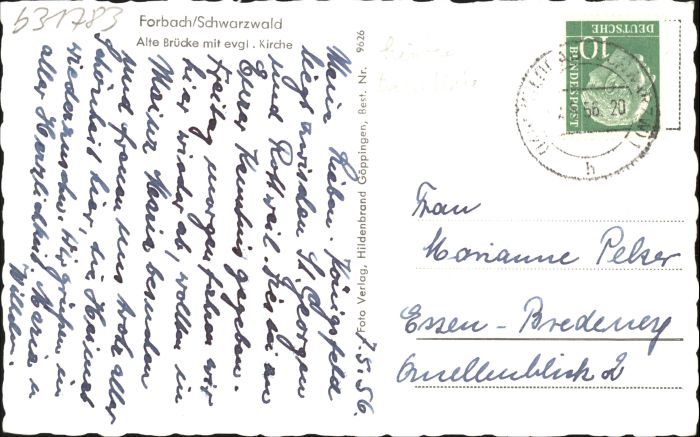 b31783
Forbach/Schwarzwald
Alte Brücke mit evgl. Kirche
7.5.56.
Meine Lieben. Königsfeld
liegt zwischen St. Georgen
und Rottweil. Dies sei zu
Eurer Kenntnis gegeben.
Freitag morgen fahren wir
hier wieder ab, wollten in
Mainz Maria besuchen
und freuen uns trotz aller
Schönheit hier, die Heimat
wiederzusehn. Wir grüßen in
aller Herzlichkeit Maria u
Willem.
Foto Verlag, Hildenbrand Göppingen, Best. Nr. 9626
DEUTSCHE
BUNDESPOST
10
56. 20
h
Frau
Marianne Pelser
Essen - Bredeney
Quellenblick 2